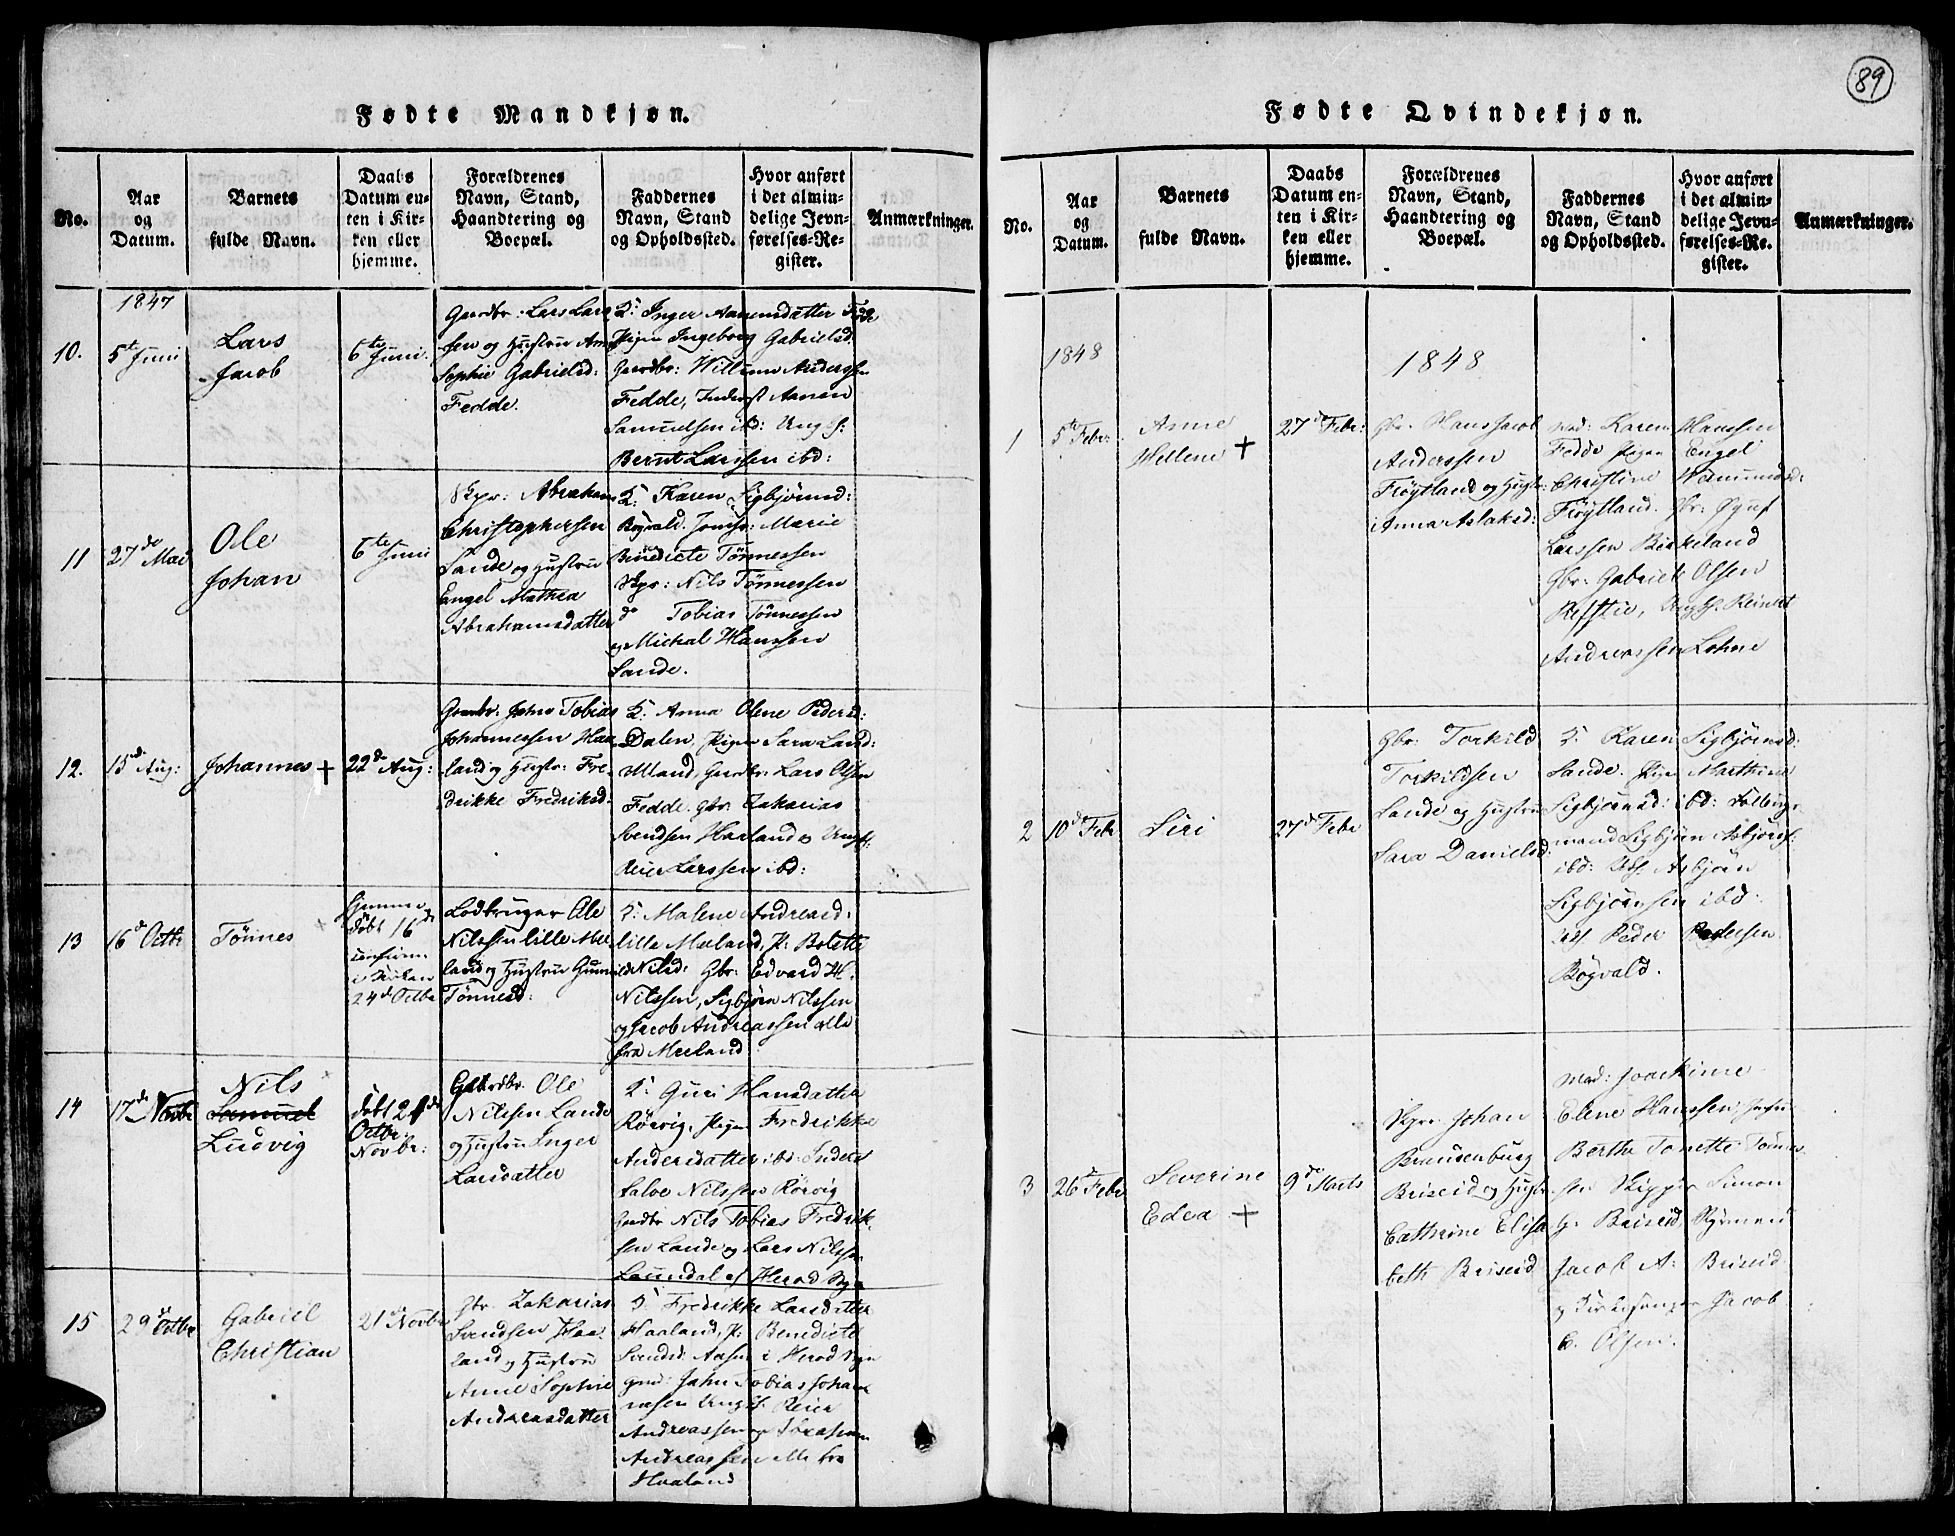 89
Fødte Mandkjøn.
No.
Aar og Datum.
Barnets fulde Navn.
Daabs Datum en-
ten i Kir-
ken eller
hjemme.
Forældrenes
Navn, Stand,
Haandtering og
Boepæl.
Faddernes
Navn, Stand
og Opholdssted.
Hvor anført
i det almin-
delige Jevn-
førelses-Re-
gister.
Anmærkninger.
1847
10.
5te Juni
Lars
Jacob
6te Juni.
Gaardbr: Lars Lars
sen og Hustru Anne
Sophie Gabrielsd:
Fedde.
K: Inger Aanensdatter Fedde
Pigen Ingeborg Gabrielsd:
Gaardbr: Willum Anderssen
Fedde, Inderst Aanen
Samuelsen ibd: Ungk:
Bernt Larssen ibd:
11
27de Mai
Ole
Johan
6te Juni
Skpr: Abraham
Christophersen
Sande og Hustru
Engel Mathea
Abrahamsdatter
K: Karen Sigbjørnsd:
Bøgvald. Jomfr: Marie
Benedicte Tønnessen
Skpr: Nils Tønnessen
do Tobias Tønnessen
og Michal Hanssen
Sande.
12.
15de Aug:
Johannes +
22de Aug:
Gaardbr: John Tobias
Johannessen Haa
land og Hustr: Fre-
drikke Fredriksd.
K: Anna Olene Pedersd:
Dalen, Pigen Sara Larsd:
Gaardbr: Lars Olsen
Fedde. Gbr: Zakarias
Svendsen Haaland og Ungk:
Reier Larssen ibd:
13
16de Octbr
Tønnes
Hjemme
døbt 16de
i Kirken
24de Octbr
Lodbruger Ole
Nilssen lille Mee
land og Hustru Gunnild
Tønnesd:
K: Malene Andreasd:
lille Meeland, P: Bolette
Nilsd: Gbr: Edvard H.
Nilssen, Sigbjørn Nilssen
og Jacob Andreassen alle
fra Meeland
14
17de Novbr
Nils
Samuel
Ludvig
døbt 21de
Octbr.
Novbr:
Gaardbr. Ole
Nilssen Lande
og Hustru Inger
Larsdatter
K: Guri Hansdatter
Rørvig, Pigen Fredrikke
Andersdatter ibd: Inderst
Salve Nilssen Rørvig
Gaardbr Nils Tobias Fredrik-
sen Lande og Lars Nilssen
Laundal af Herad Sogn
15
29de Octbr
Gabriel
Christian
21de Novbr
Gbr. Zakarias
Svendsen Haa
land og Hustru
Anne Sophie
Andreasdatter
K: Fredrikke Larsdatter
Haaland, P: Benedicte
Svendsd: Aasen i Herad Sogn
John Tobias Johan
nessen Ungk. Reier
Andreassen og Jonas
Andreassen alle fra
Haaland
Fødte Qvindekjøn.
No.
Aar og Datum.
Barnets fulde Navn.
Daabs
Datum en-
ten i Kir-
ken eller
hjemme.
Forældrenes
Navn, Stand,
Haandtering og
Boepæl.
Faddernes
Navn, Stand
og Opholdssted.
Hvor anført
i det almin-
delige Jevn-
førelses-Re-
gister.
Anmærkninger.
1848
1848
1
5te Febr:
Anne
Hellene +
27de Febr:
Gbr. Hans Jacob
Anderssen
Frøytland og Hustr:
Anna Aslaksd:
Mad: Karen Hanssen
Fedde Pigen Engel
Christine Wemundsd:
Frøytland. Gbr:
Larssen Birkeland
Gbr: Gabriel Olsen
Refstie, Ungk. Reinert
Andreassen Lohne
2
10de Febr
Siri
27de Febr
Gbr: Torkild
Torkildsen
Sande og Hustru
Sara Danielsd:
K: Karen Sigbjørnsd:
Sande. Pigen Marthine
Sigbjørnsd: ibd:
mand Sigbjørn Asbjørns:
ibd: Asbjørn
Sigbjørnsen ibd:
Peder Pedersen
Bøgvald.
3
26de Febr
Severine
Edea +
9de Marts
Skpr. Johan
Brandenburg
Briseid og Hustr
Cathrine Elisa
beth Briseid
Mad: Joackime
Elene Hanssen, Jomfru
Berthe Tonette Tønnes-
sen Skipper Simon
G. Briseid, Styrmand
Jacob A: Briseid
og Kirkesanger Jacob
C. Olsen.